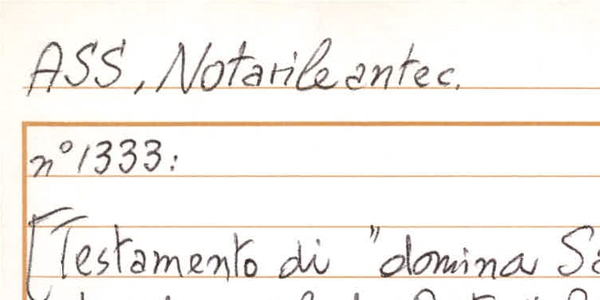 ASS, Notarile antec.
n° 1333:
[Testamento di "domina